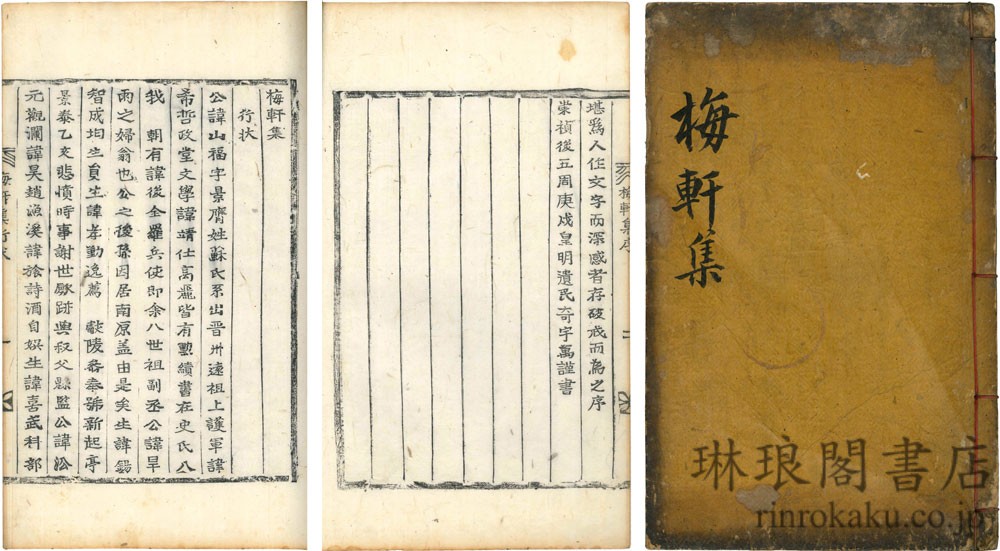 梅軒集
琳琅閣書店
rinrokaku.co.jp
梅軒集序
堪爲人作文字而深感者存破戒而爲之序
崇禎後五周庚戌皇明遺民奇宇萬謹書
梅軒集
行狀
公諱山福字景膺姓蘇氏系出晋州遠祖上護軍諱
希哲政堂文學諱靖仕高麗皆有勳績書在史氏入
我 朝有諱後全羅兵使即余八世祖副丞公諱旱
雨之婦翁也公之後孫因居南原盖由是矣生諱錫
智成均生員生諱孝勤逸薦 獻陵參奉號新起亭
景泰乙亥悲憤時事謝世歛跡與叔父縣監公諱
元觀瀾諱昊趙漁溪諱旅詩酒自娛生諱喜武科部
梅軒集行狀 一